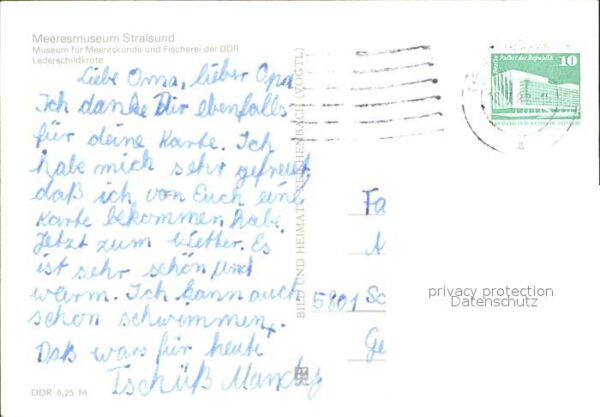 Meeresmuseum Stralsund
Museum für Meereskunde und Fischerei der DDR
Lederschildkröte
Liebe Oma, lieber Opa
Ich danke Dir ebenfalls
für deine Karte. Ich
habe mich sehr gefreut,
daß ich von Euch eine
Karte bekommen habe.
Jetzt zum Wetter. Es
ist sehr schön und
warm. Ich kann auch
schon schwimmen.
Daß wars für heute
Tschüß
DDR 0,25 M
BILD UND HEIMAT REICHENBACH (VOGTL)
Palast der Republik
10
Fa
5801 Sc
Ge
privacy protection
Datenschutz